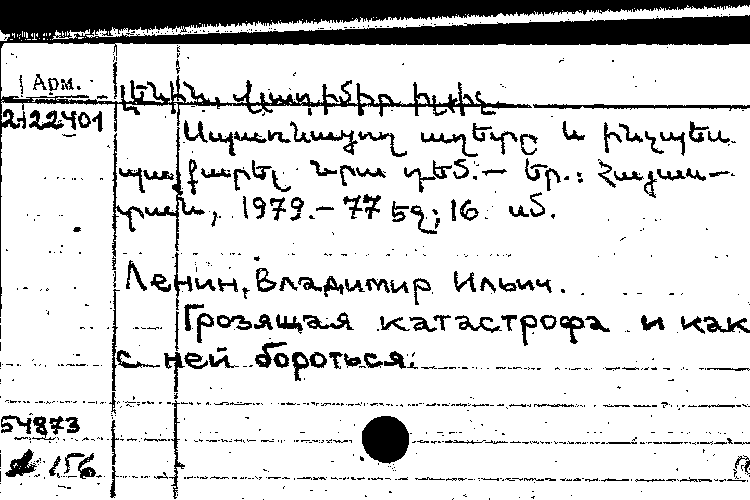 Арм.
Լենին, Վլադիմիր Իլյիչ
2-22401
Սպառնացող աղետը և ինչպես
պայքարել նրա դեմ.— Եր.: Հայաս-
տան, 1979.— 77 էջ; 16 սմ.
Ленин, Владимир Ильич.
Грозящая катастрофа и как
с ней бороться.
54873
156